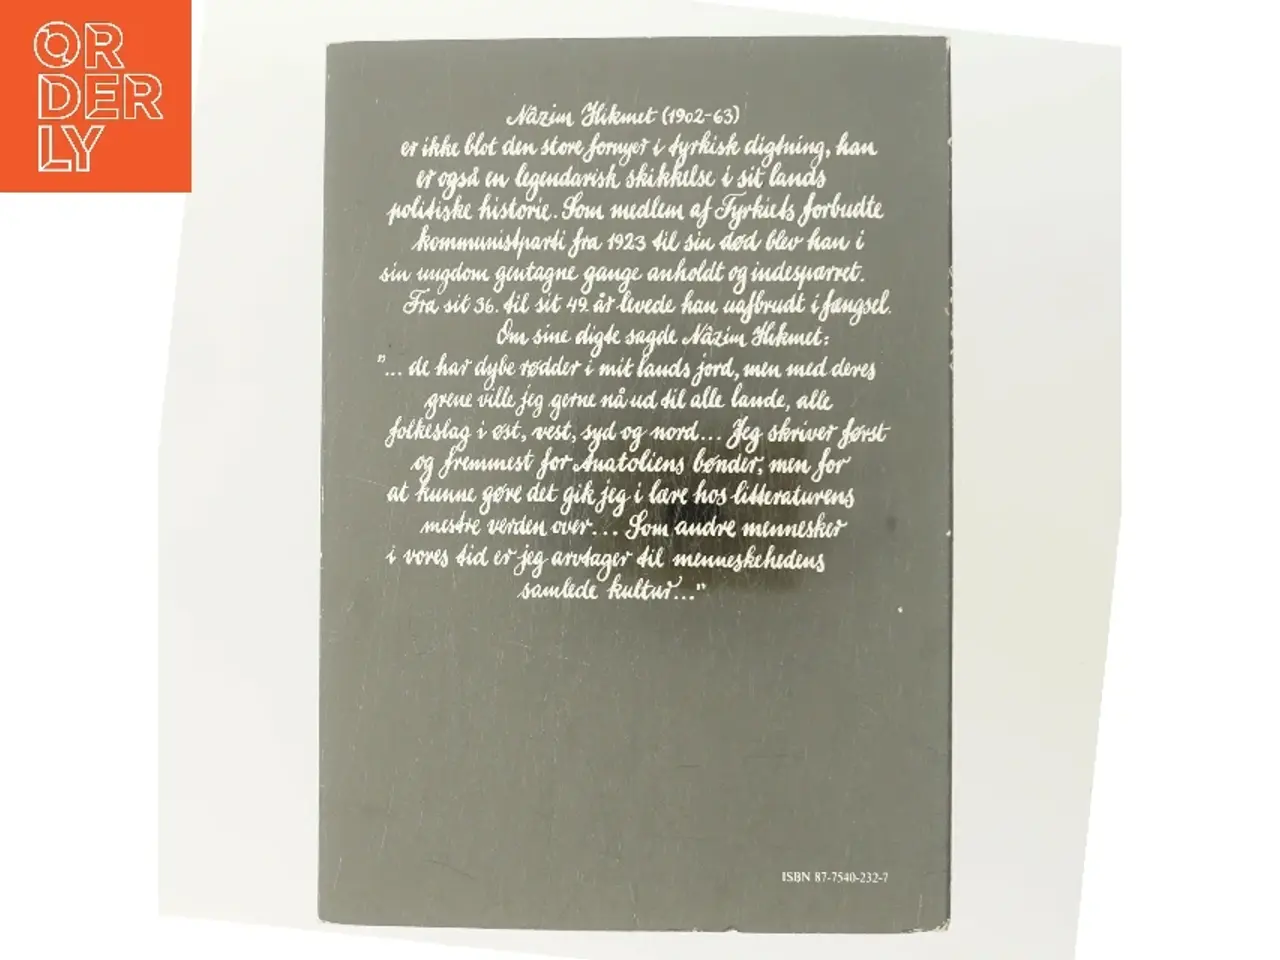 ORDERLY
Nâzim Hikmet (1902-63)
er ikke blot den store fornyer i tyrkisk digtning, han
er også en legendarisk skikkelse i sit lands
politiske historie. Som medlem af Tyrkiets forbudte
kommunistparti fra 1923 til sin død blev han i
sin ungdom gentagne gange anholdt og indespærret.
Fra sit 36. til sit 49. år levede han uafbrudt i fængsel.
Om sine digte sagde Nâzim Hikmet:
"... de har dybe rødder i mit lands jord, men med deres
grene ville jeg gerne nå ud til alle lande, alle
folkeslag i øst, vest, syd og nord... Jeg skriver først
og fremmest for Anatoliens bønder, men for
at kunne gøre det gik jeg i lære hos litteraturens
mestre verden over... Som andre mennesker
i vores tid er jeg arvtager til menneskehedens
samlede kultur..."
ISBN 87-7540-232-7